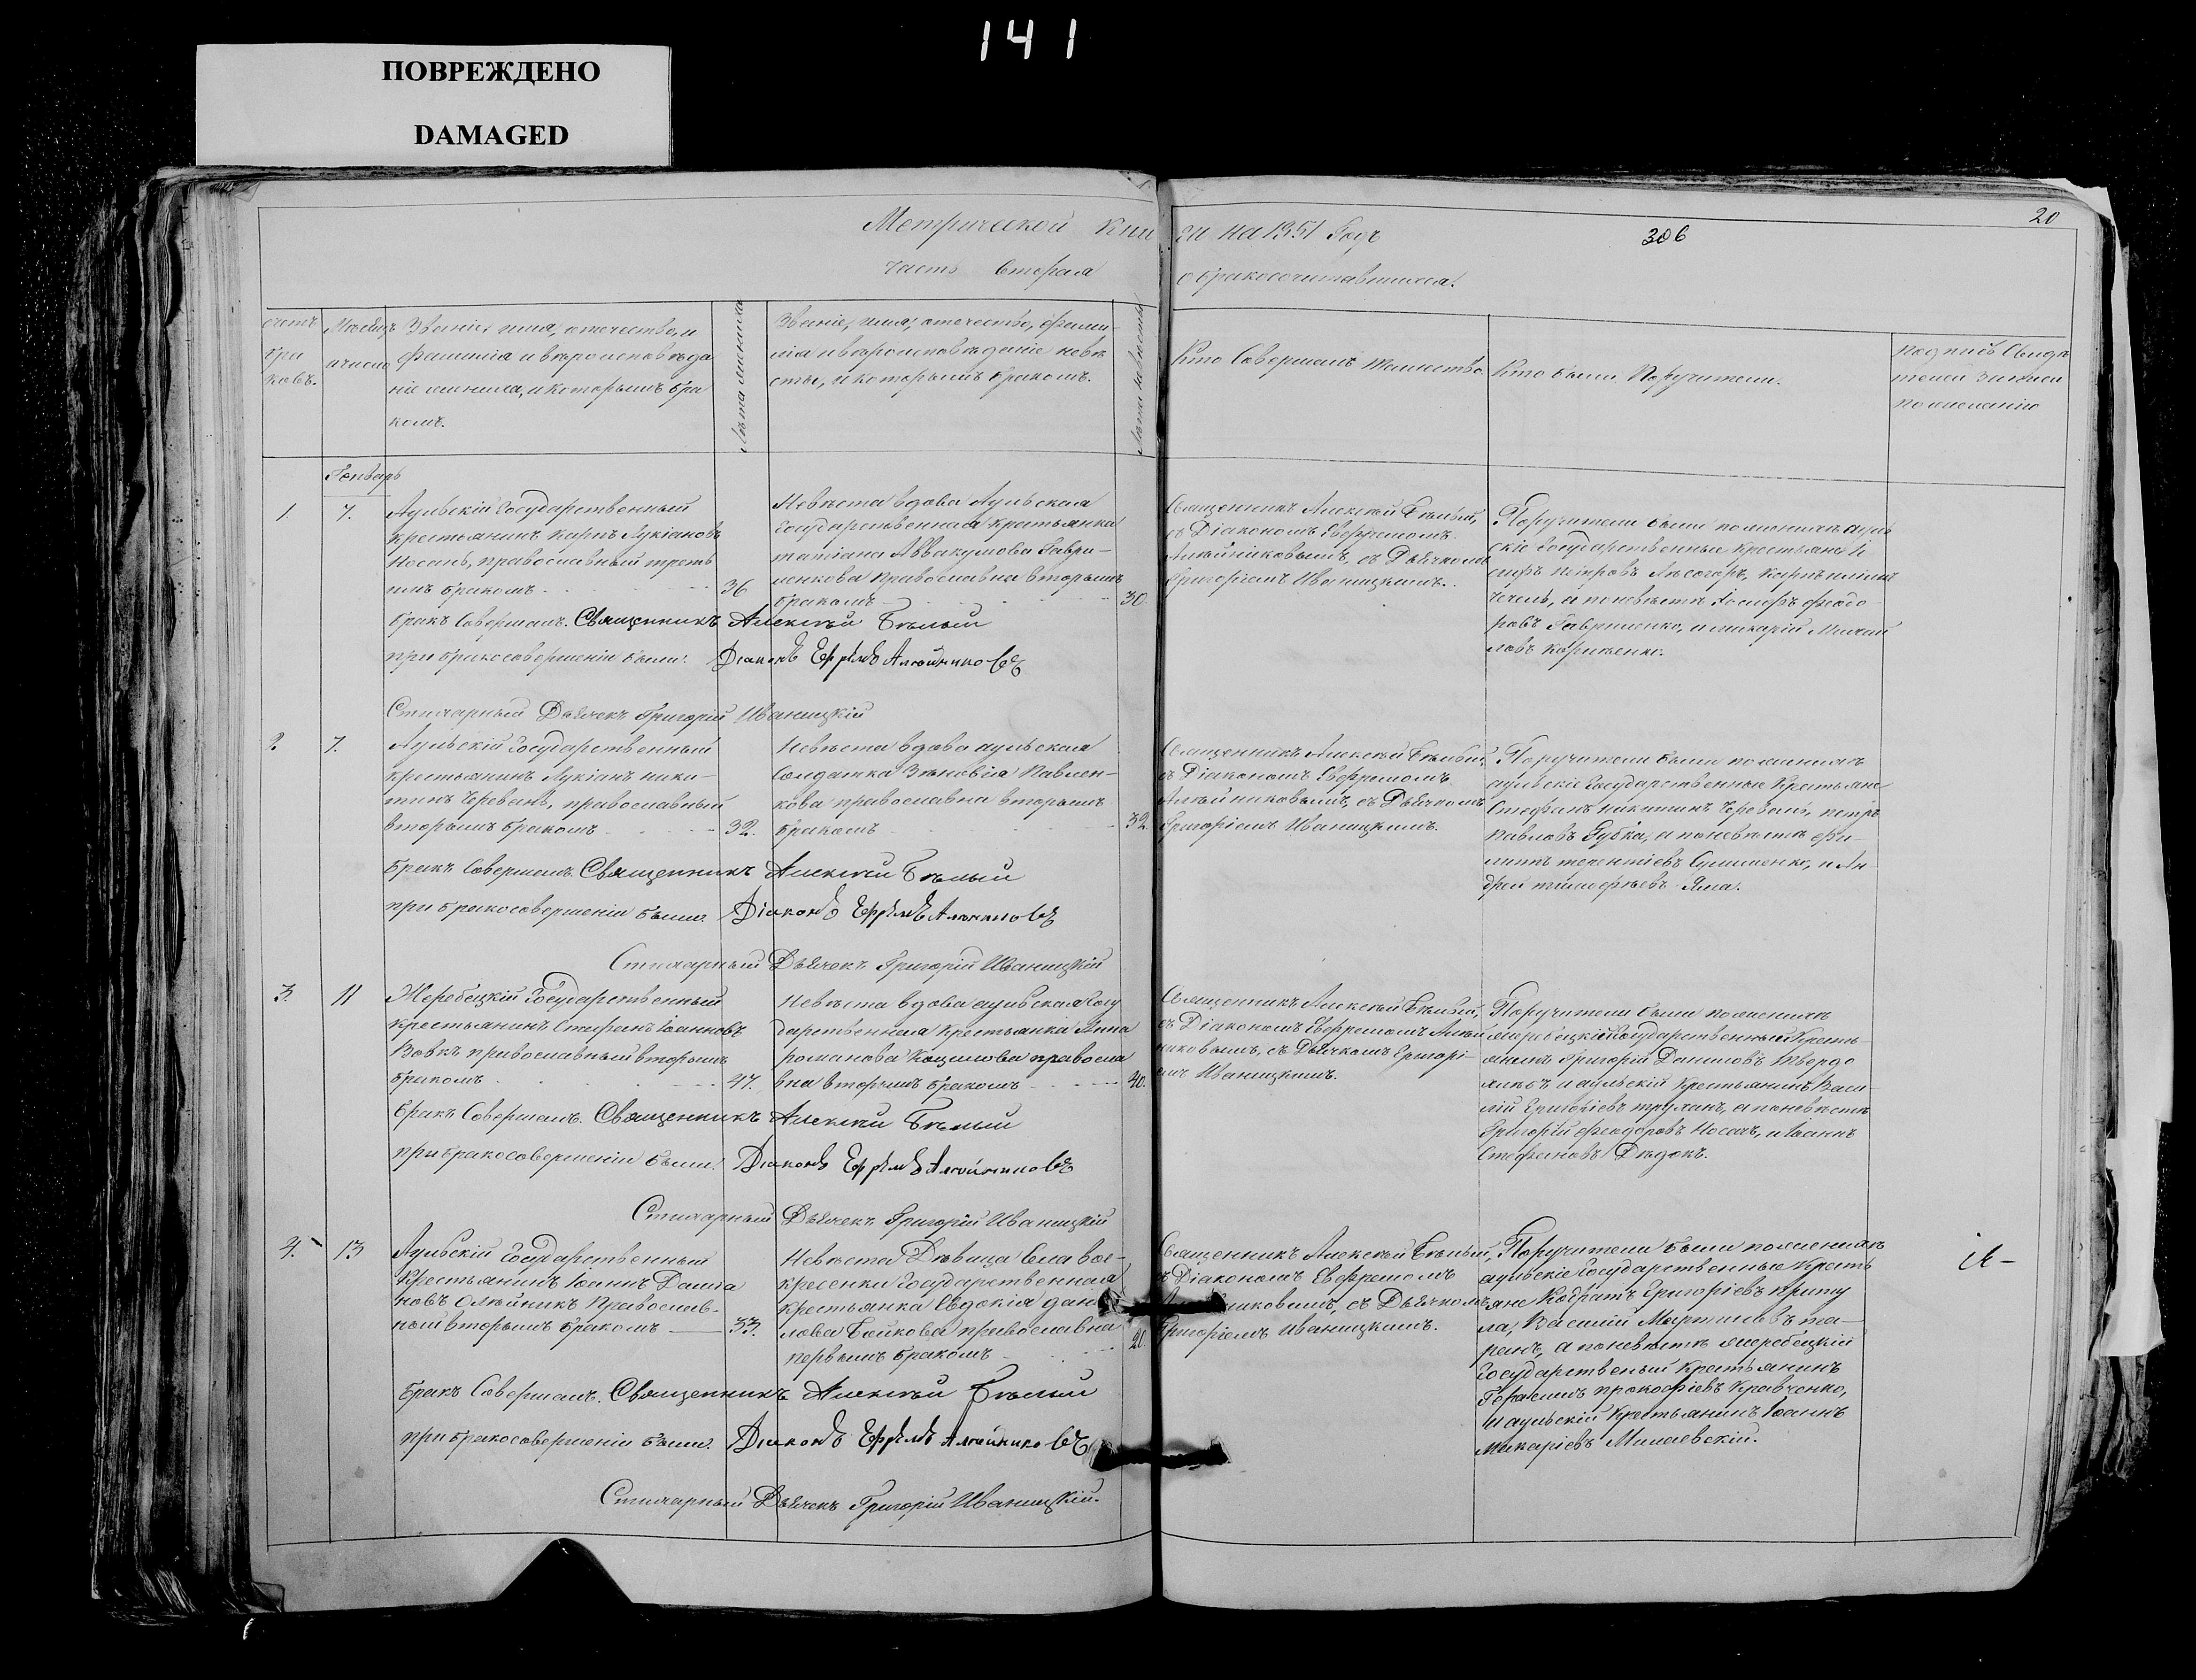 141
ПОВРЕЖДЕНО
DAMAGED
20
306
Метрической кни ги на 1851 Годъ
часть вторая о бракосочитавшихся.
счетъ
бра
ковъ.
Мѣсяцъ
и число
Званіе, имя, отечество, и
фамилія и вѣроисповѣда
ніе жениха, и которымъ бра
комъ.
Лѣта жениха
Званіе, имя, отечество, фами-
лія и вѣроисповѣданіе невѣ
сты, и которымъ бракомъ.
Лѣта невѣсты
Кто Совершалъ таинство
Кто были Поручители.
подпись Свидѣ
телей записи
по желанію
Генварь
1. 7.
Аульскій Государственный
крестьянинъ Карпъ Лукіановъ
Носань, православный треть
имъ бракомъ 36
Невѣста вдова Аульская
Государственная крестьянка
татіана Аввакумова Гаври-
ленкова православна вторымъ
бракомъ 30.
Священникъ Алексѣй Бѣлый,
съ Діакономъ Евфремомъ
Алейниковымъ, съ Дьячкомъ
Григоріемъ Иваницкимъ.
Поручители были по женихѣ ауль
скіе Государственные Крестьяне
Петровъ
а по невѣстѣ Іосифъ Феодо-
ровъ Гавриленко, и макарій
ловъ
бракъ Совершалъ. Священникъ Алексѣй Бѣлый
при бракосовершеніи были: Діаконъ Ефремъ Алейниковъ
Стихарный Дьячекъ Григорій Иваницкій
2. 7.
Аульскій Государственный
крестьянинъ Лукіанъ ники-
тинъ Черевань, православный
вторымъ бракомъ 32.
Невѣста вдова аульская
Солдатка Зѣновія Павлен-
кова православна вторымъ
бракомъ 32.
Священникъ Алексѣй Бѣлый,
съ Діакономъ Евфремомъ
Алейниковымъ, съ Дьячкомъ
Григоріемъ Иваницкимъ.
Поручители были по женихѣ
аульскіе Государственные Крестьяне
Стефанъ никитинъ Черевань, петръ
Павловъ Губка, а по невѣстѣ фи-
липъ терентіевъ Сулименко, и Ан-
дрей тимофѣевъ Яма.
бракъ Совершалъ. Священникъ Алексѣй Бѣлый
при бракосовершеніи были: Діаконъ Ефремъ Алейниковъ
Стихарный Дьячекъ Григорій Иваницкій
3. 11
Жеребецкій Государственный
крестьянинъ Стефанъ Іоанновъ
Вовкъ православный вторымъ
бракомъ 47.
Невѣста вдова аульская Госу
дарственная Крестьянка Анна
романова Коцилова правосла
вна вторымъ бракомъ 40.
Священникъ Алексѣй Бѣлый,
съ Діакономъ Евфремомъ Алей
никовымъ, съ Дьячкомъ Григорі-
емъ Иваницкимъ.
Поручители были по женихѣ
жеребецкій Государственный Кресть-
янинъ Григорій Даниловъ Твердо
хлѣбъ и аульскій Крестьянинъ Васи-
лій Григоріевъ труханъ, а по невѣстѣ
Григорій феодоровъ Носань, и Іоаннъ
Стефановъ Дѣдокъ.
бракъ Совершалъ. Священникъ Алексѣй Бѣлый
при бракосовершеніи были: Діаконъ Ефремъ Алейниковъ
Стихарный Дьячекъ Григорій Иваницкій
4. 13
Аульскій Государственный
Крестьянинъ Іоаннъ Доміа
новъ Олѣйникъ Православ-
ный вторымъ бракомъ 33.
Невѣста Дѣвица села вос-
кресенки Государственная
крестьянка Евдокія дани
лова Бойкова православна
первымъ бракомъ 20.
Священникъ Алексѣй Бѣлый,
съ Діакономъ Евфремомъ
никовымъ, съ Дьячкомъ
Григоріемъ Иваницкимъ.
Поручители были по женихѣ
аульскіе Государственные Кресть
яне Кодратъ Григоріевъ Приту
ла, Василій Мартиновъ та-
ранъ, а по невѣстѣ жеребецкій
Государственый крестьянинъ
Герасимъ прокофіевъ Кравченко,
и аульскій крестьянинъ Іоаннъ
макаріевъ Милаевскій.
бракъ Совершалъ. Священникъ Алексѣй Бѣлый
при бракосовершеніи были: Діаконъ Ефремъ Алейниковъ
Стихарный Дьячекъ Григорій Иваницкій.